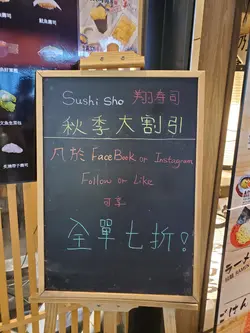 Sushi Sho 翔寿司
秋季大割引
凡於 FaceBook or Instagram
Follow or Like
可享
全單七折!